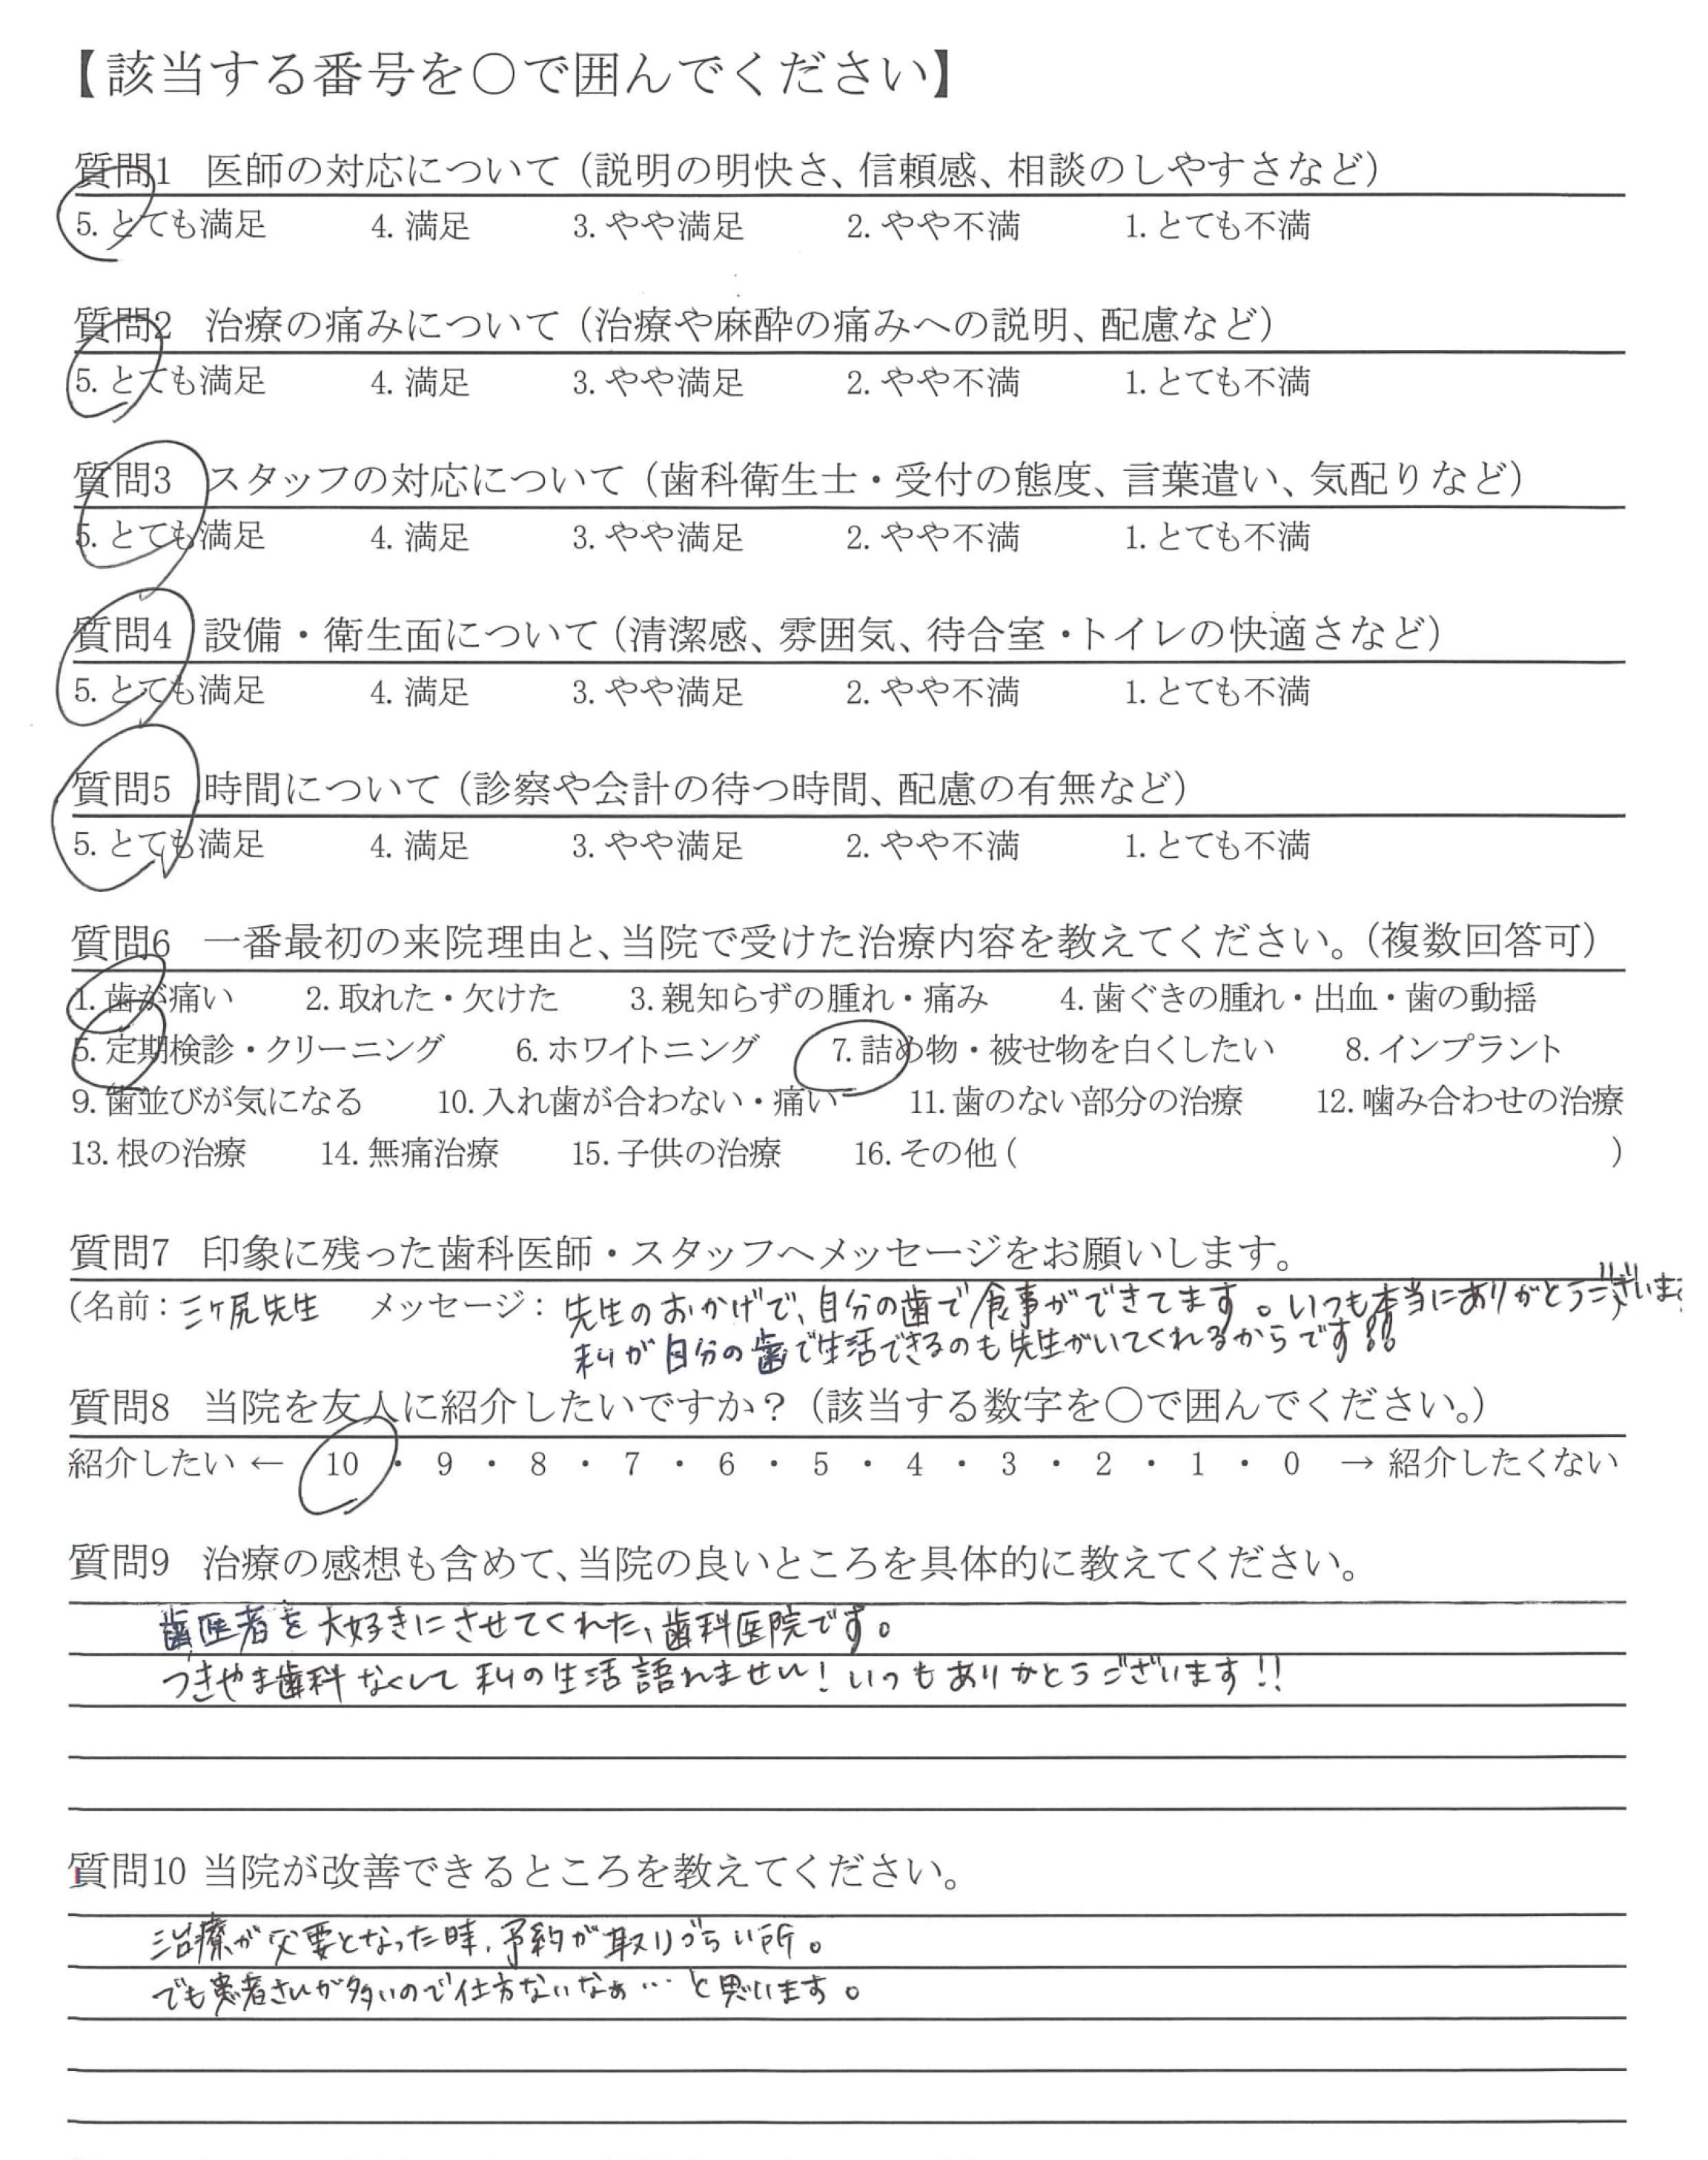 【該当する番号を〇で囲んでください】
質問1 医師の対応について（説明の明快さ、信頼感、相談のしやすさなど）
5. とても満足 4. 満足 3. やや満足 2. やや不満 1. とても不満
質問2 治療の痛みについて（治療や麻酔の痛みへの説明、配慮など）
5. とても満足 4. 満足 3. やや満足 2. やや不満 1. とても不満
質問3 スタッフの対応について（歯科衛生士・受付の態度、言葉遣い、気配りなど）
5. とても満足 4. 満足 3. やや満足 2. やや不満 1. とても不満
質問4 設備・衛生面について（清潔感、雰囲気、待合室・トイレの快適さなど）
5. とても満足 4. 満足 3. やや満足 2. やや不満 1. とても不満
質問5 時間について（診察や会計の待つ時間、配慮の有無など）
5. とても満足 4. 満足 3. やや満足 2. やや不満 1. とても不満
質問6 一番最初の来院理由と、当院で受けた治療内容を教えてください。（複数回答可）
1. 歯が痛い 2. 取れた・欠けた 3. 親知らずの腫れ・痛み 4. 歯ぐきの腫れ・出血・歯の動揺
5. 定期検診・クリーニング 6. ホワイトニング 7. 詰め物・被せ物を白くしたい 8. インプラント
9. 歯並びが気になる 10. 入れ歯が合わない・痛い 11. 歯のない部分の治療 12. 噛み合わせの治療
13. 根の治療 14. 無痛治療 15. 子供の治療 16. その他 ( )
質問7 印象に残った歯科医師・スタッフへメッセージをお願いします。
(名前：三ヶ尻先生 メッセージ：先生のおかげで、自分の歯で食事ができてます。いつも本当にありがとうございます。)
私が自分の歯で生活できるのも先生がいてくれるからです!!
質問8 当院を友人に紹介したいですか？（該当する数字を〇で囲んでください。）
紹介したい ← 10 ・ 9 ・ 8 ・ 7 ・ 6 ・ 5 ・ 4 ・ 3 ・ 2 ・ 1 ・ 0 → 紹介したくない
質問9 治療の感想も含めて、当院の良いところを具体的に教えてください。
歯医者を大好きにさせてくれた、歯科医院です。
つきやま歯科なくして私の生活語れません！いつもありがとうございます!!
質問10 当院が改善できるところを教えてください。
治療が必要となった時、予約が取りづらい所。
でも患者さんが多いので仕方ないなぁ…と思います。